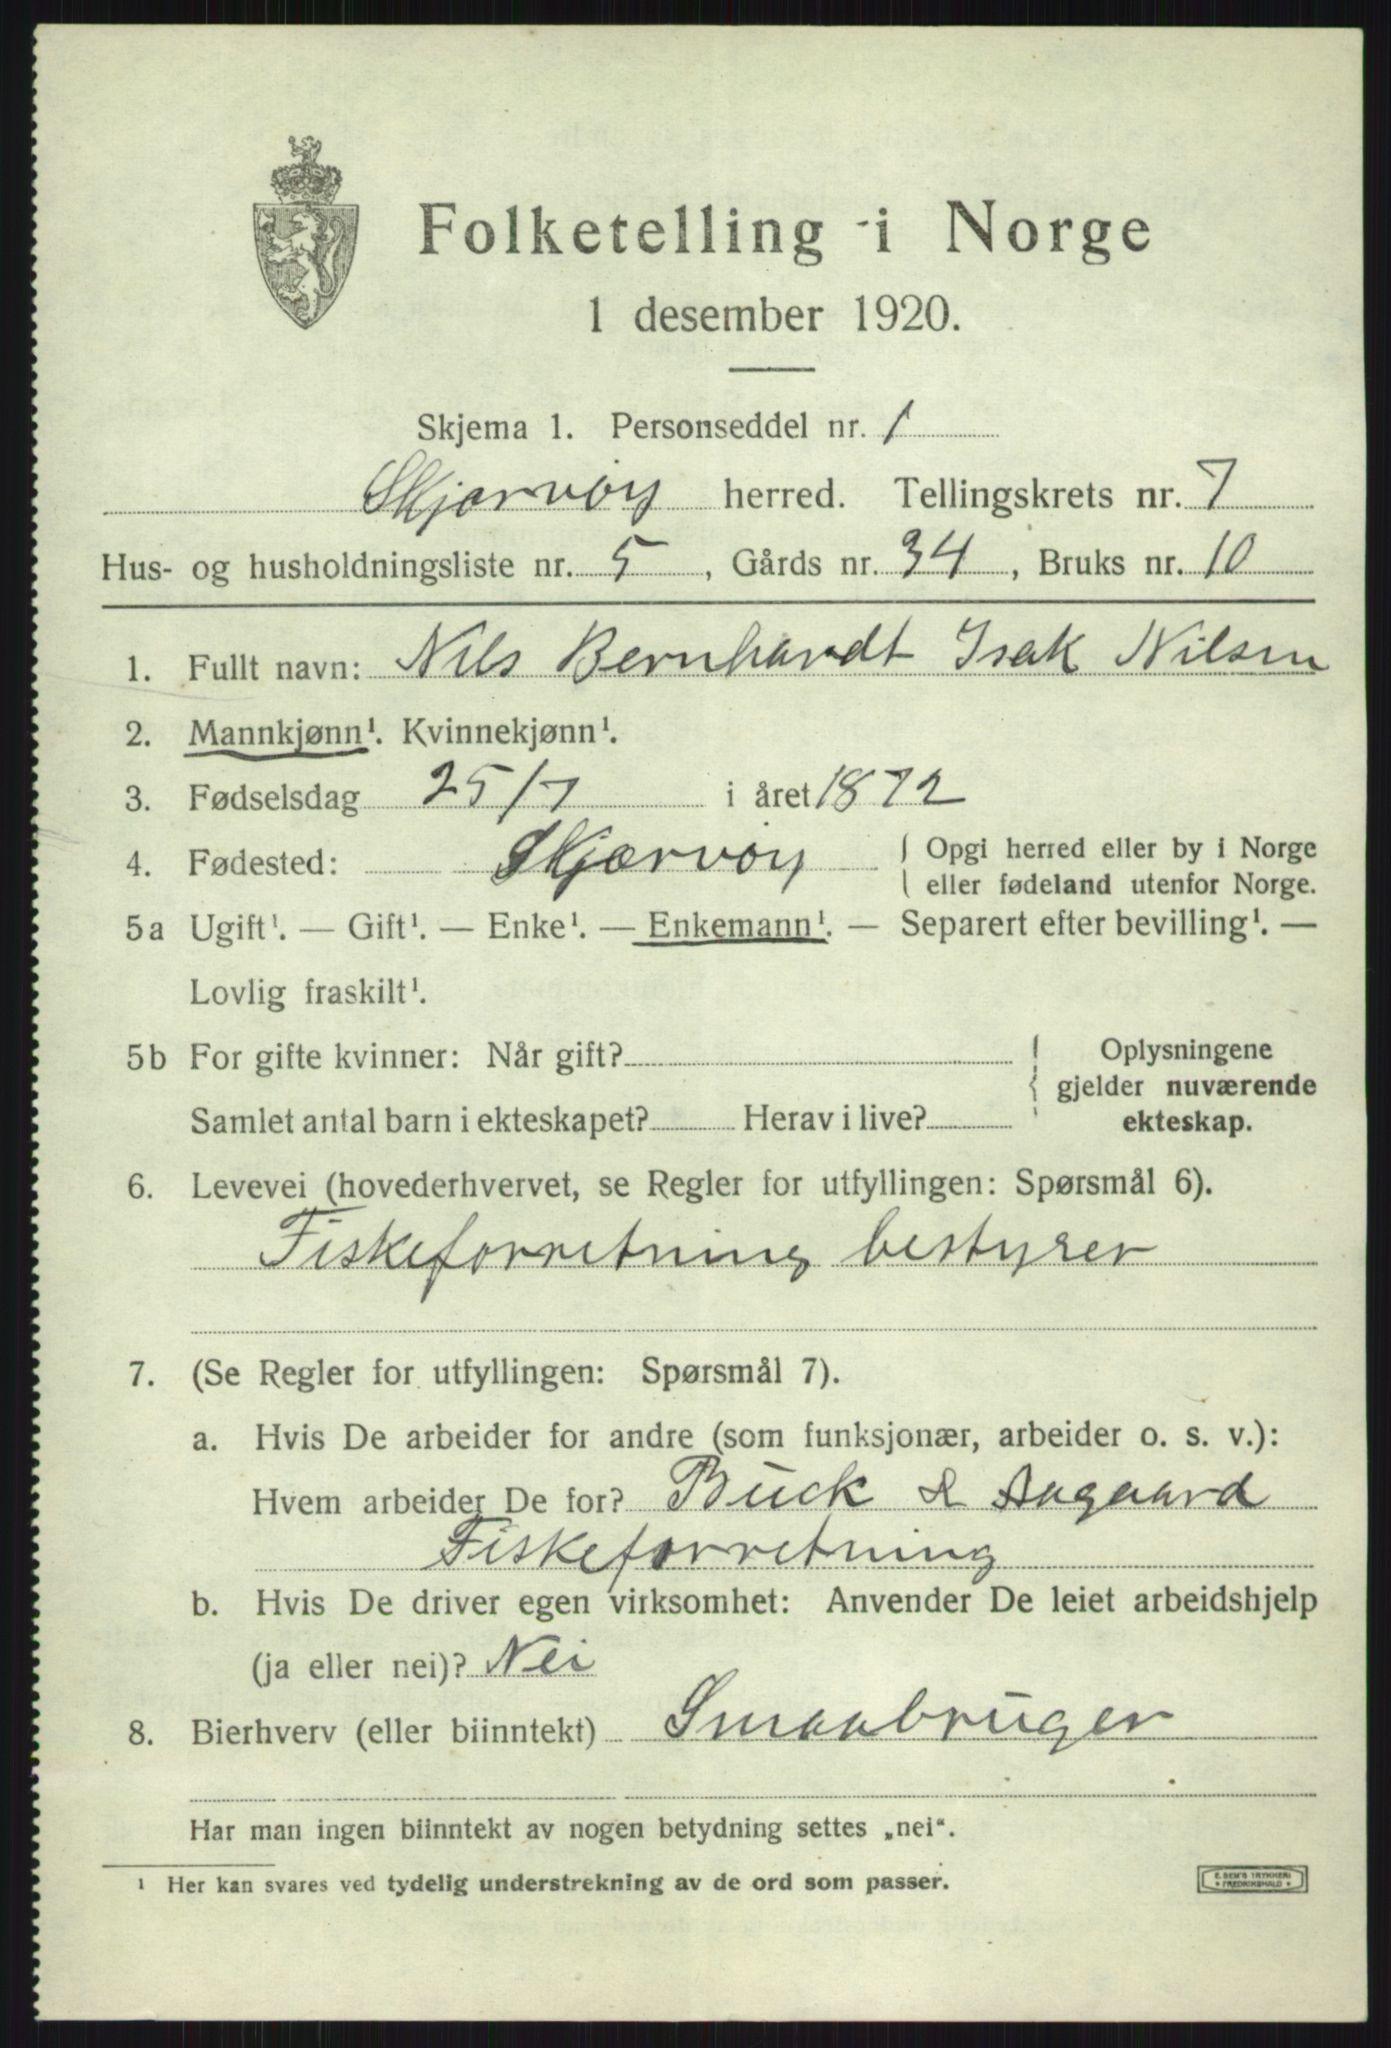 Folketelling i Norge
1 desember 1920.
Skjema 1. Personseddel nr. 1
Skjærvöy herred. Tellingskrets nr. 7
Hus- og husholdningsliste nr. 5, Gårds nr. 34, Bruks nr. 10
1. Fullt navn: Nils Bernhardt Isak Nilsen
2. Mannkjønn¹. Kvinnekjønn¹.
3. Fødselsdag 25/7 i året 1872
4. Fødested: Skjærvöy
Opgi herred eller by i Norge
eller fødeland utenfor Norge.
5a Ugift¹. — Gift¹. — Enke¹. — Enkemann¹. — Separert efter bevilling¹. —
Lovlig fraskilt¹.
5b For gifte kvinner: Når gift?
Samlet antal barn i ekteskapet? Herav i live?
Oplysningene
gjelder nuværende
ekteskap.
6. Levevei (hovederhvervet, se Regler for utfyllingen: Spørsmål 6).
Fiskeforretning bestyrer
7. (Se Regler for utfyllingen: Spørsmål 7).
a. Hvis De arbeider for andre (som funksjonær, arbeider o. s. v.):
Hvem arbeider De for? Buck & Aagaard
Fiskeforretning
b. Hvis De driver egen virksomhet: Anvender De leiet arbeidshjelp
(ja eller nei)? Nei
8. Bierhverv (eller biinntekt) Smaabruger
Har man ingen biinntekt av nogen betydning settes „nei“.
¹ Her kan svares ved tydelig understrekning av de ord som passer.
E. SEM'S TRYKKERI
FREDRIKSHALD